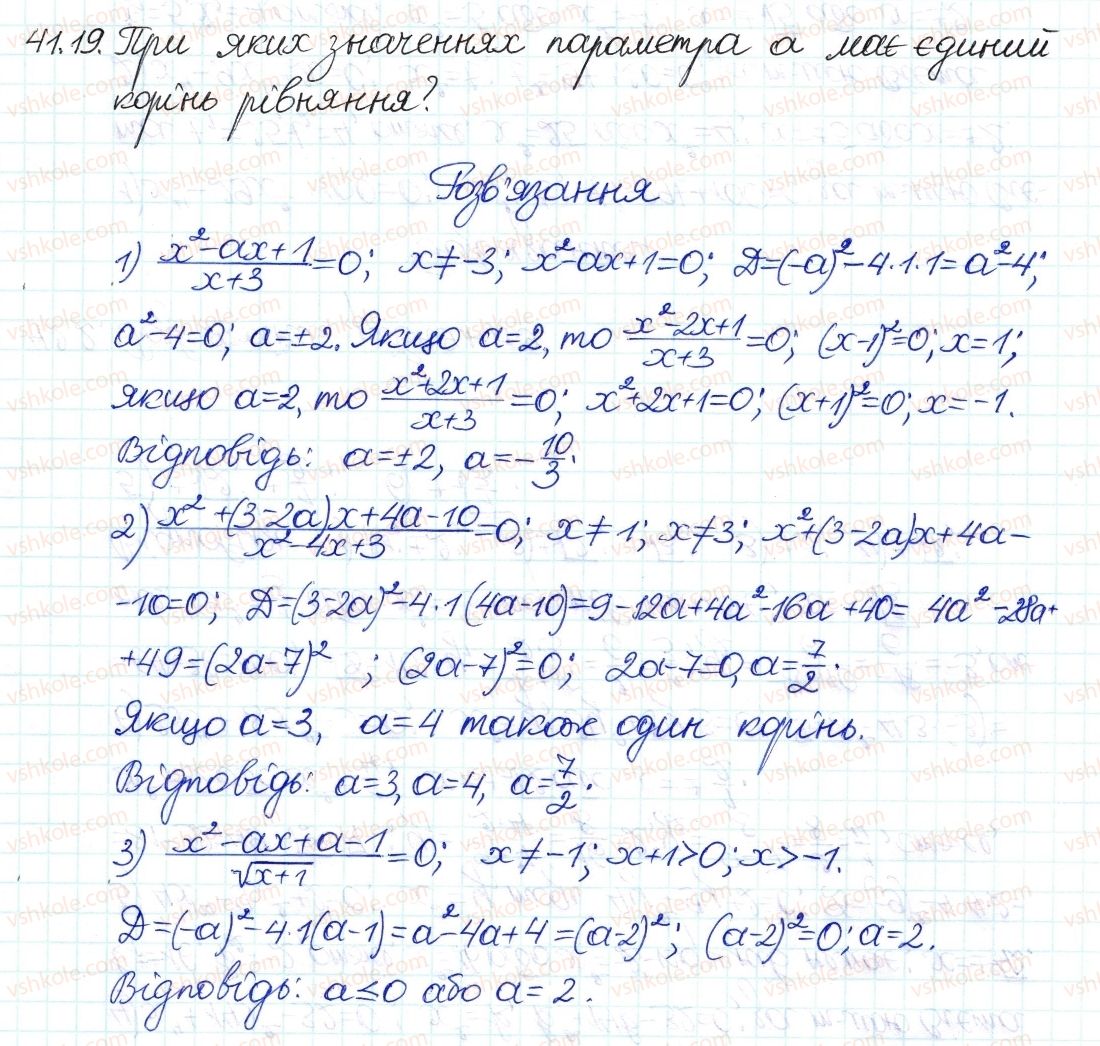 41.19. При яких значеннях параметра а має єдиний
корінь рівняння?
Розв'язання
1) (x²-ax+1)/(x+3)=0; x≠-3; x²-ax+1=0; D=(-a)²-4·1·1=a²-4;
a²-4=0; a=±2. Якщо a=2, то (x²-2x+1)/(x+3)=0; (x-1)²=0; x=1;
якщо a=2, то (x²+2x+1)/(x+3)=0; x²+2x+1=0; (x+1)²=0; x=-1.
Відповідь: a=±2, a=-10/3.
2) (x²+(3-2a)x+4a-10)/(x²-4x+3)=0; x≠1; x≠3; x²+(3-2a)x+4a-
-10=0; D=(3-2a)²-4·1(4a-10)=9-12a+4a²-16a+40= 4a²-28a+
+49=(2a-7)² ; (2a-7)²=0; 2a-7=0, a=7/2.
Якщо a=3, a=4 також один корінь.
Відповідь: a=3, a=4, a=7/2.
3) (x²-ax+a-1)/√(x+1)=0; x≠-1; x+1>0; x>-1.
D=(-a)²-4·1(a-1)=a²-4a+4=(a-2)²; (a-2)²=0; a=2.
Відповідь: a≤0 або a=2.